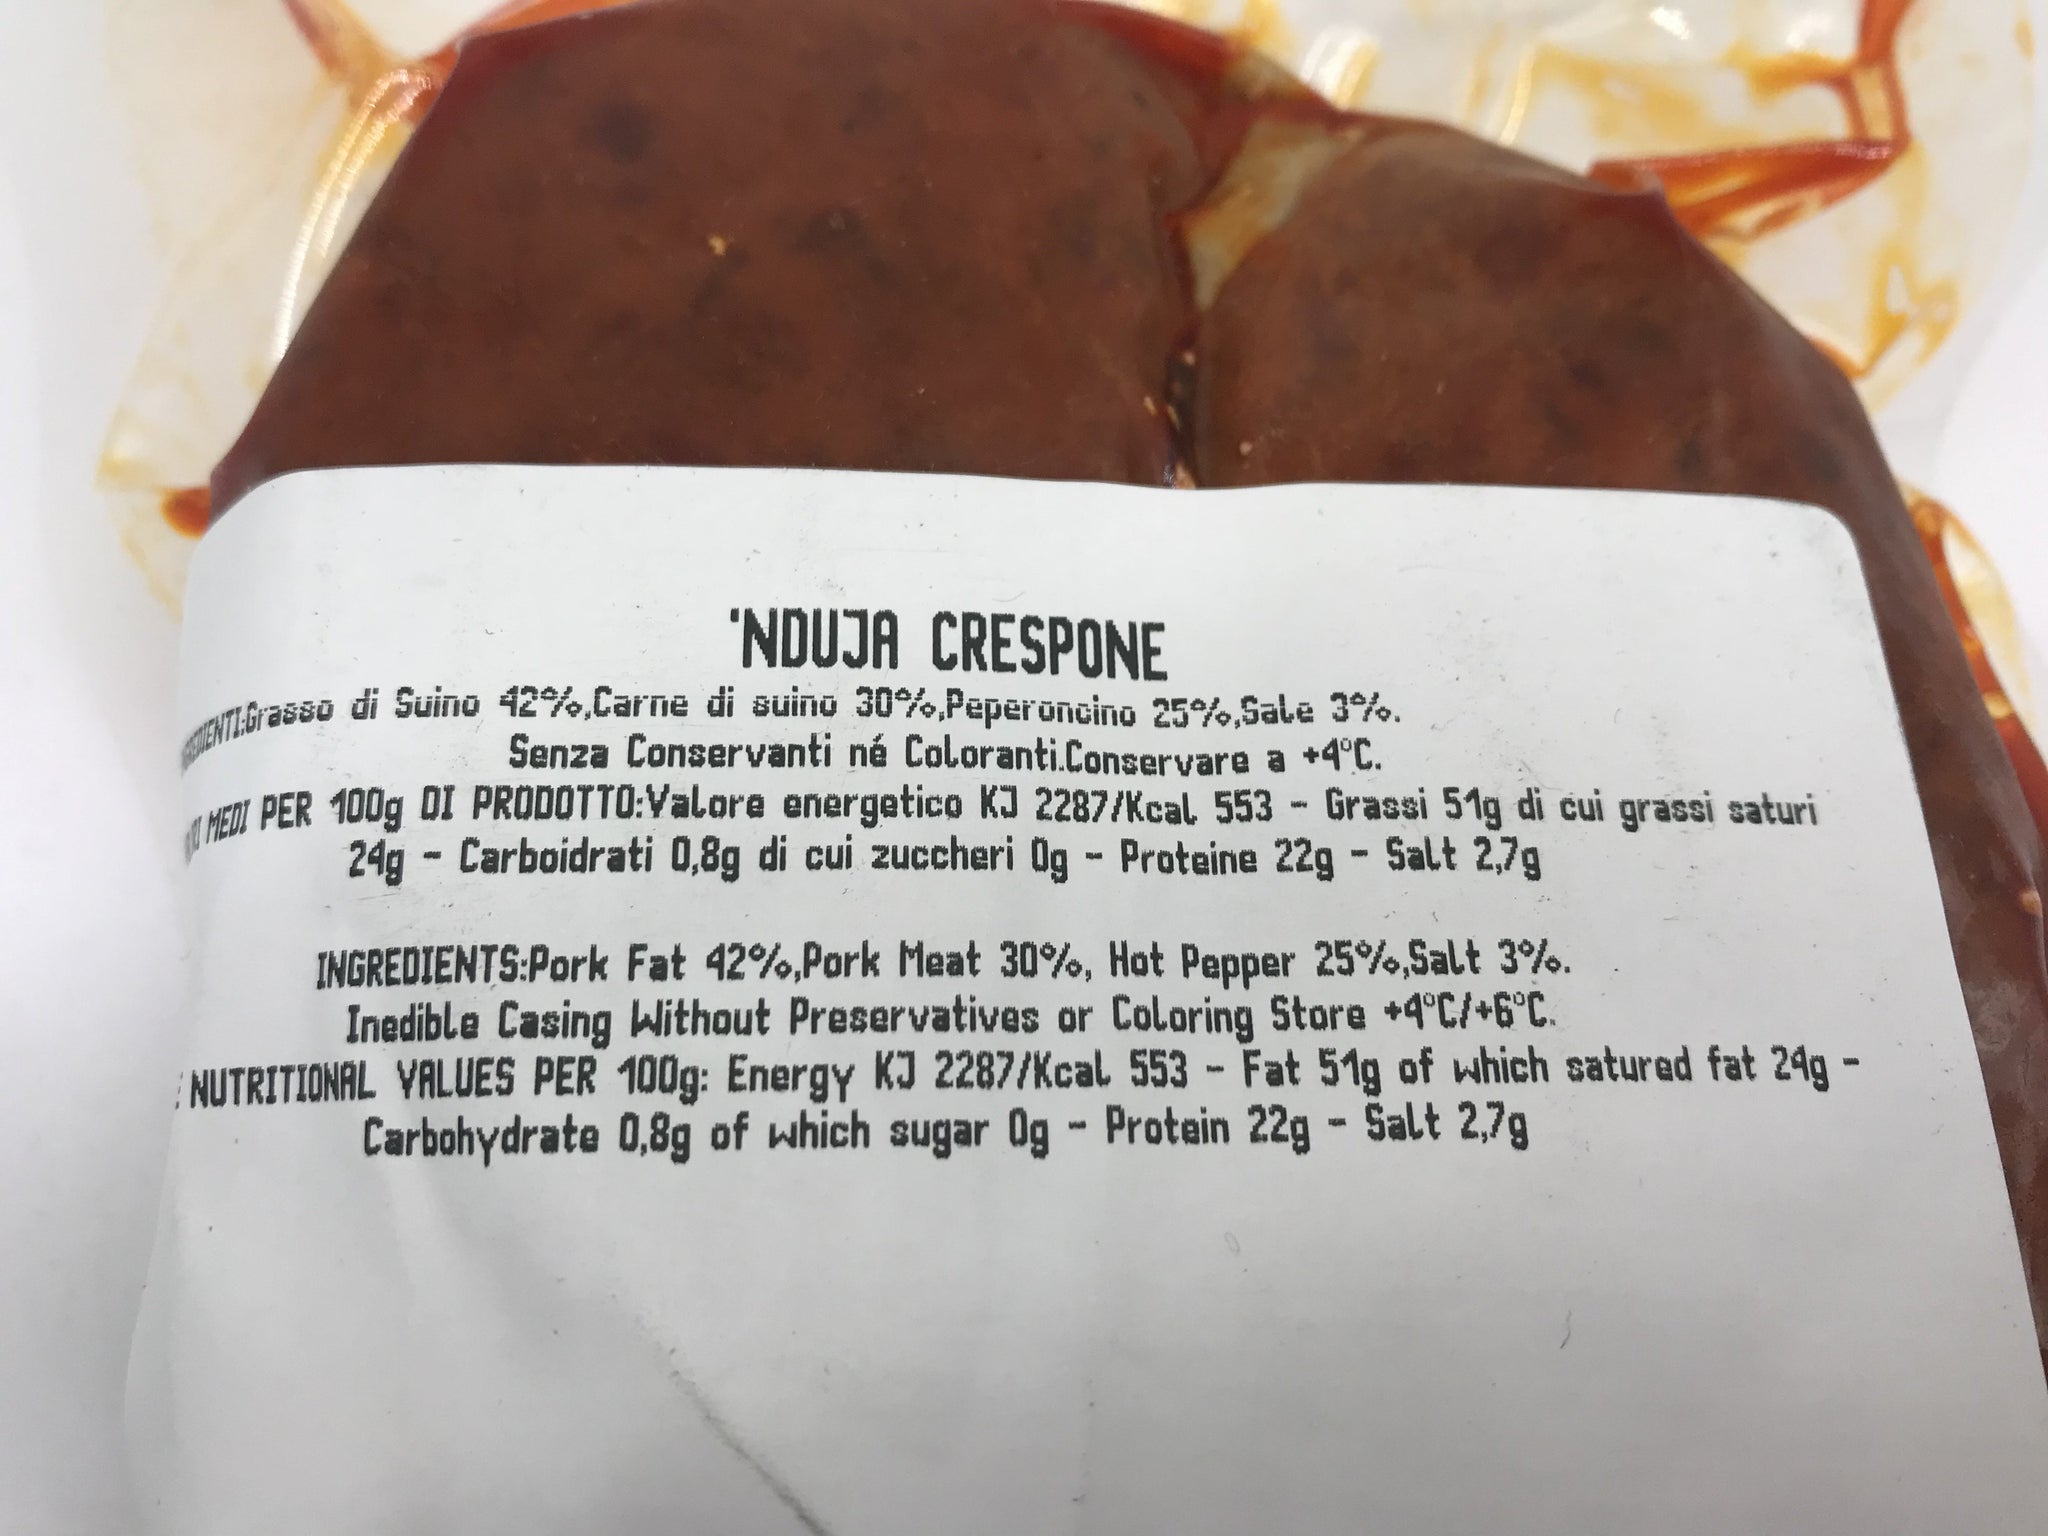 'NDUJA CRESPONE
Grasso di Suino 42%,Carne di suino 30%,Peperoncino 25%,Sale 3%.
Senza Conservanti né Coloranti.Conservare a +4°C.
MEDI PER 100g DI PRODOTTO:Valore energetico KJ 2287/Kcal 553 - Grassi 51g di cui grassi saturi
24g - Carboidrati 0,8g di cui zuccheri 0g - Proteine 22g - Salt 2,7g
INGREDIENTS:Pork Fat 42%,Pork Meat 30%, Hot Pepper 25%,Salt 3%.
Inedible Casing Without Preservatives or Coloring Store +4°C/+6°C.
NUTRITIONAL VALUES PER 100g: Energy KJ 2287/Kcal 553 - Fat 51g of which satured fat 24g -
Carbohydrate 0,8g of which sugar 0g - Protein 22g - Salt 2,7g